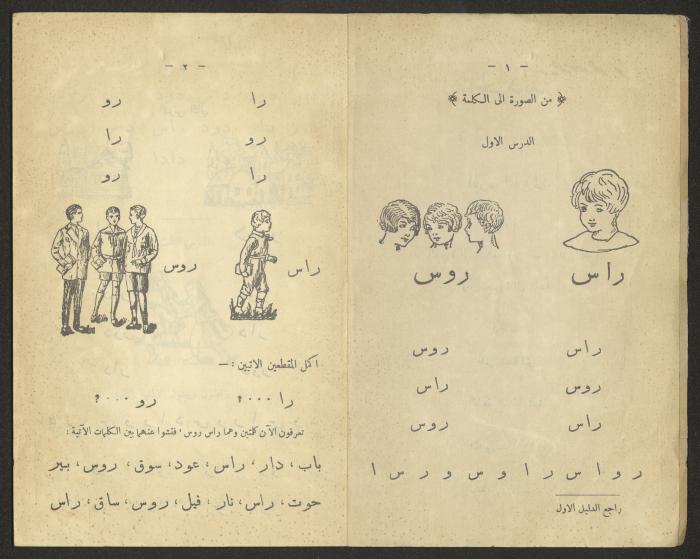 — ١ —
﴿ من الصورة الى الكلمة ﴾
الدرس الاول
راس روس
راس روس
روس راس
راس روس
ر و ا س ر ا و س و ر س ا
راجع الدليل الاول
— ٢ —
را رو
رو را
را رو
راس روس
اكمل المقطعين الاتيين : —
را ٠٠٠؟ رو ٠٠٠؟
تعرفون الآن كلمتين وهما راس روس ، ففتشوا عنهما بين الكلمات الآتية :
باب ، دار ، راس ، عود ، سوق ، روس ، بير
حوت ، راس ، نار ، فيل ، روس ، ساق ، راس